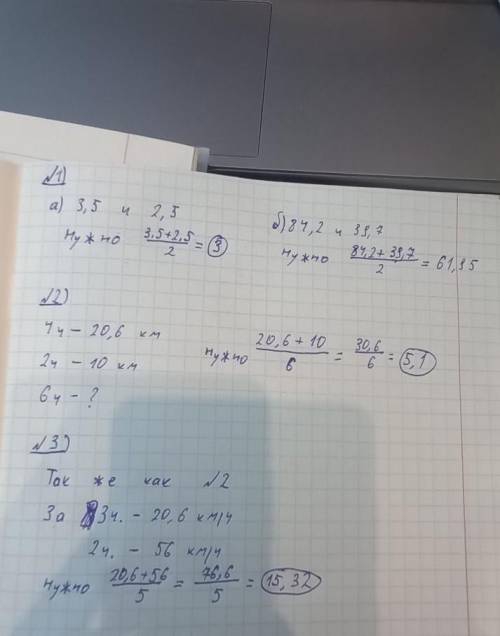 №1)
а) 3,5 и 2,5
нужно (3,5+2,5)/2 = 3
б) 84,2 и 39,7
нужно (84,2+39,7)/2 = 61,95
№2)
4ч – 20,6 км
2ч – 10 км
6ч – ?
нужно (20,6 + 10)/6 = 30,6/6 = 5,1
№3)
Так же как №2
За 3ч. – 20,6 км/ч
2ч. – 56 км/ч
нужно (20,6+56)/5 = 76,6/5 = 15,32